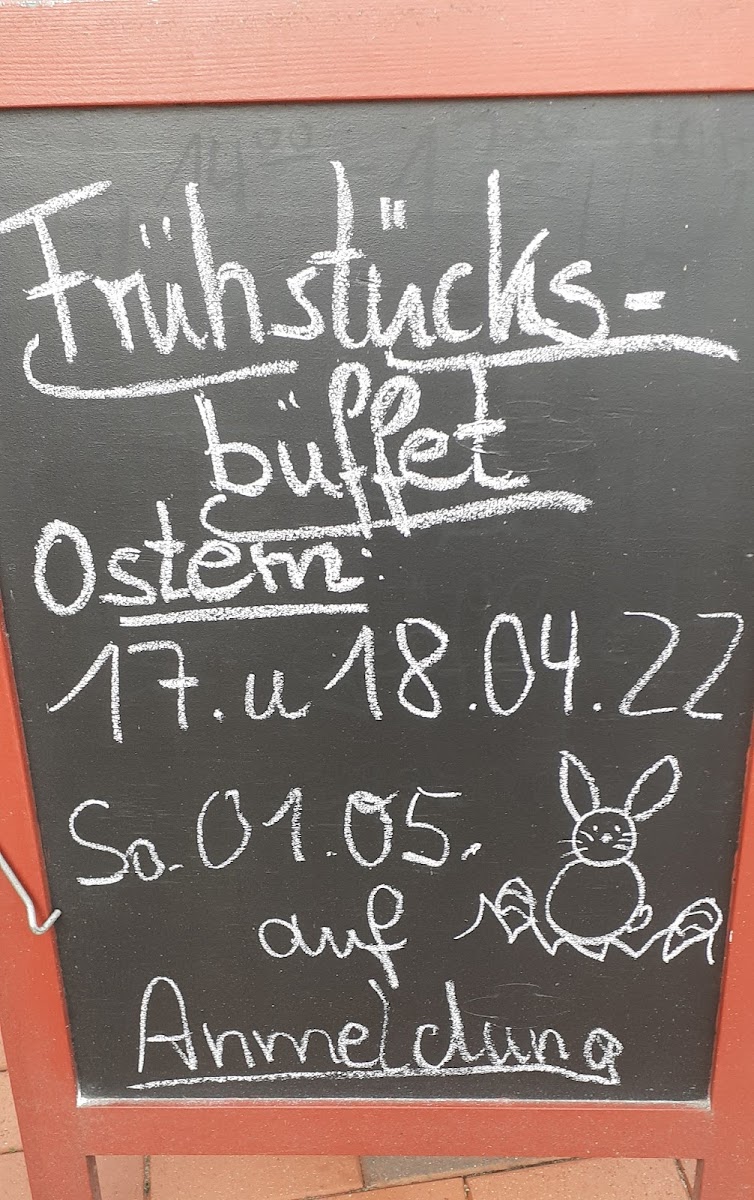 Frühstücks-
büffet
Ostern:
17. u 18.04.22
So. 01.05.
auf
Anmeldung